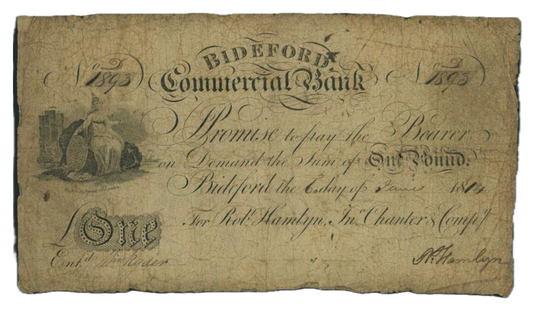 BIDEFORD
No 1893 Commercial Bank No 1893
Promise to pay the Bearer
on Demand the Sum of One Pound.
Bideford the 6 day of June 18
For Robt. Hamlyn, Jno. Chanter & Compy.
£One
Entd. Wm Ryder
Rt. Hamlyn